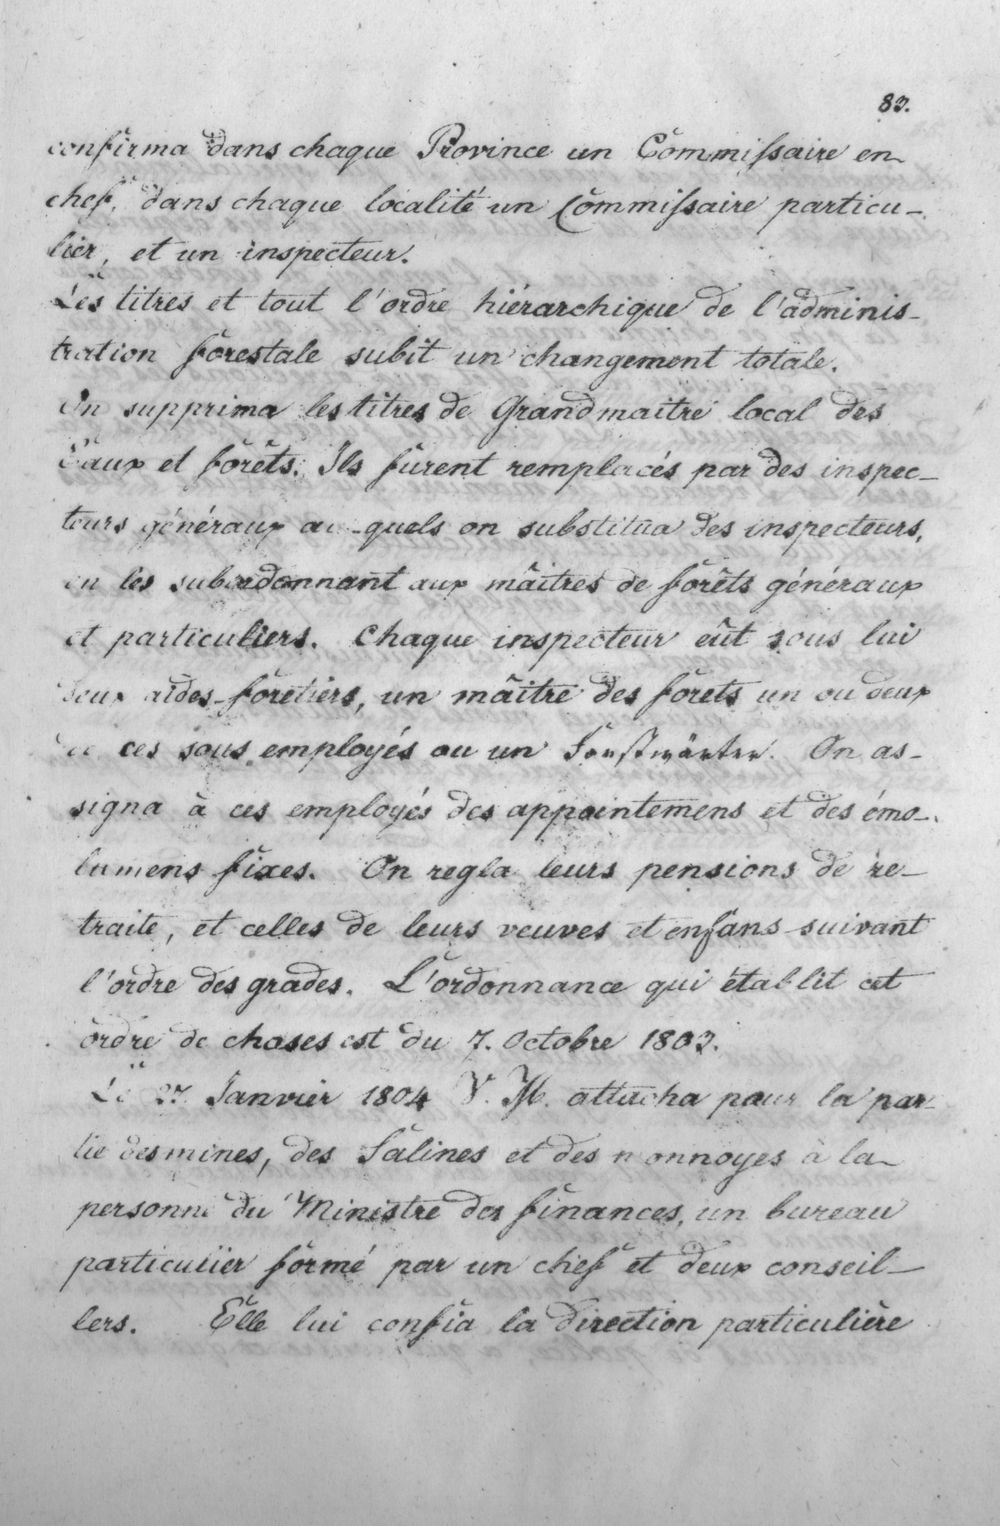 83.
confirma dans chaque Province un Commissaire en
chef, dans chaque localité un Commissaire particu-
lier, et un inspecteur.
Les titres et tout l'ordre hiérarchique de l'adminis-
tration forestale subit un changement totale.
On supprima les titres de Grandmaitre local des
Eaux et forêts. Ils furent remplacés par des inspec-
teurs généraux auquels on substitua des inspecteurs,
en les subordonnant aux mâitres de forêts généraux
et particuliers. Chaque inspecteur eût sous lui
deux aides-forêtiers, un mâitre des forets un ou deux
de ces sous employés ou un Forstwärter. On as-
signa à ces employés des appointemens et des émo-
lumens fixes. On regla leurs pensions de re-
traite, et celles de leurs veuves et enfans suivant
l'ordre des grades. L'ordonnance qui établit cet
ordre de choses est du 7. Octobre 1803.
Le 27. Janvier 1804 V. M. attacha pour la par-
tie des mines, des Salines et des monnoyes à la
personne du Ministre des finances, un bureau
particulier formé par un chef et deux conseil-
lers. Elle lui confia la direction particulière